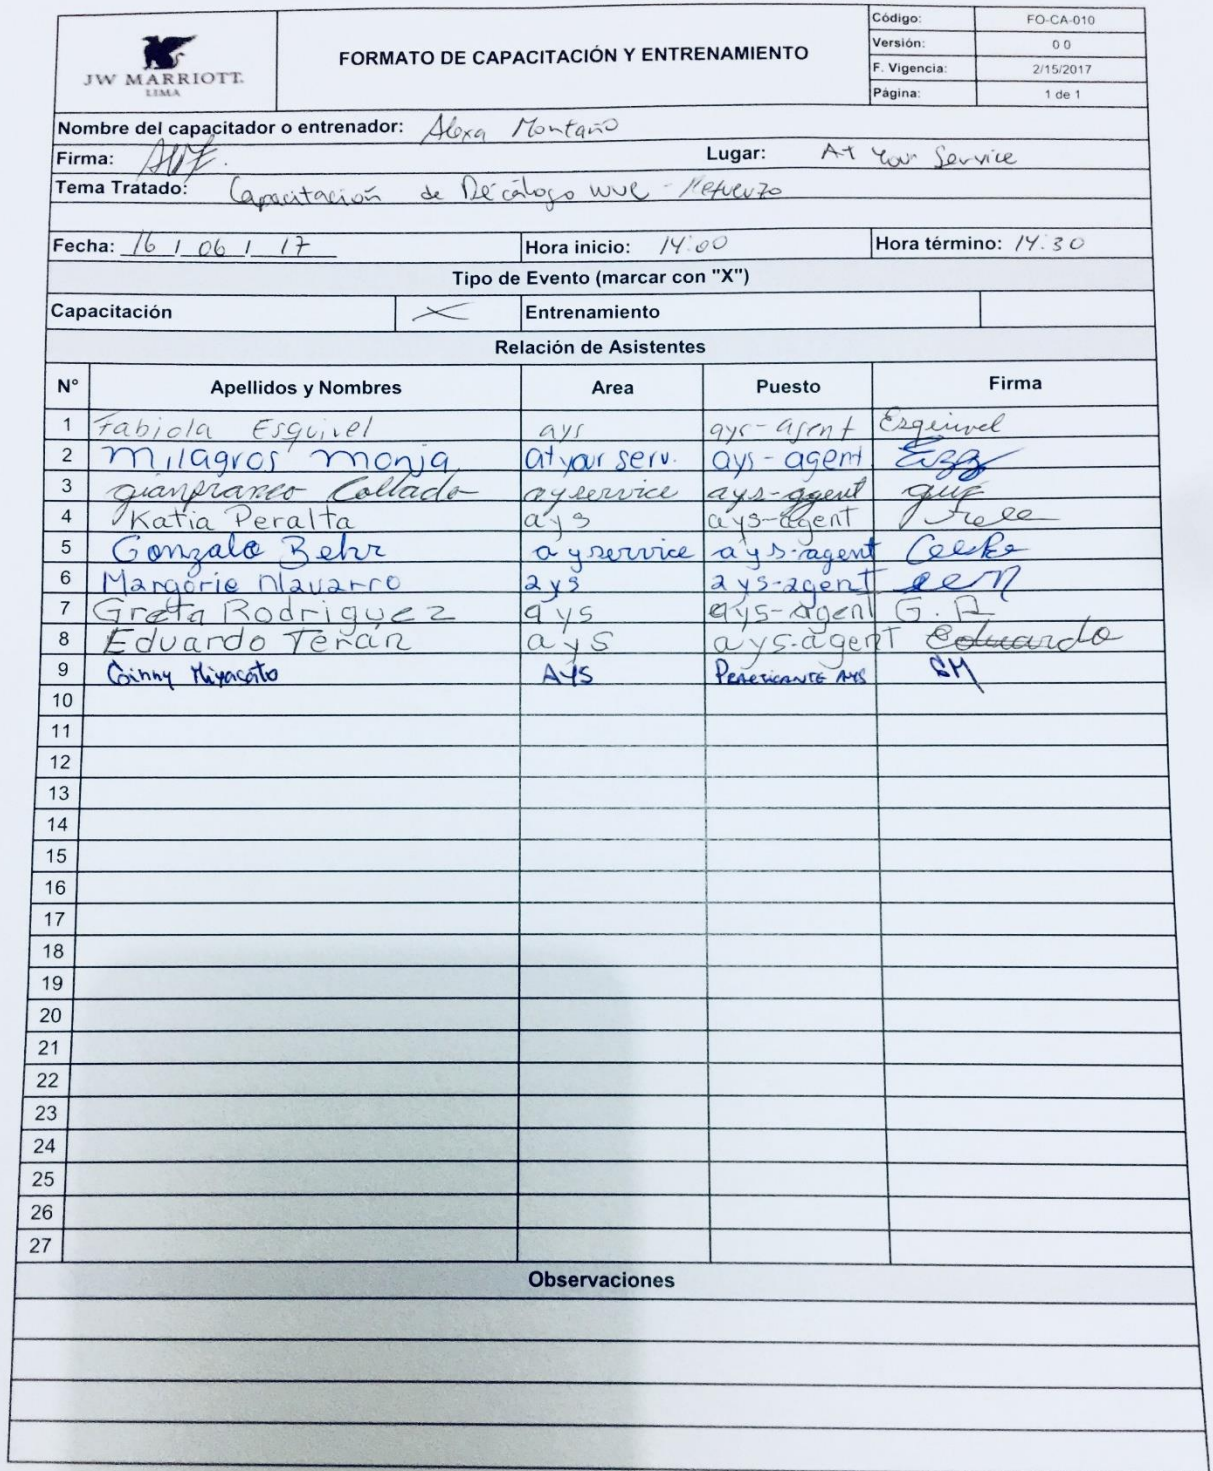 JW MARRIOTT.
LIMA
FORMATO DE CAPACITACIÓN Y ENTRENAMIENTO
Código: FO-CA-010
Versión: 0 0
F. Vigencia: 2/15/2017
Página: 1 de 1
Nombre del capacitador o entrenador: Alexa Montaño
Firma: Lugar: At Your Service
Tema Tratado: Capacitación de Decálogo WUE - Refuerzo
Fecha: 16 / 06 / 17 Hora inicio: 14:00 Hora término: 14:30
Tipo de Evento (marcar con "X")
Capacitación X Entrenamiento
Relación de Asistentes
N° Apellidos y Nombres Area Puesto Firma
1 Fabiola Esquivel ays ays-agent Esquivel
2 Milagros Monja at your serv. ays-agent
3 gianfranco Collado ayservice ays-agent
4 Katia Peralta ays ays-agent
5 Gonzalo Behr ayservice ays-agent
6 Margorie Navarro ays ays-agent
7 Greta Rodriguez ays ays-agent G. R
8 Eduardo Terán ays ays-agent Eduardo
9 Ginny Miyacato AYS PRACTICANTE AYS GM
10
11
12
13
14
15
16
17
18
19
20
21
22
23
24
25
26
27
Observaciones